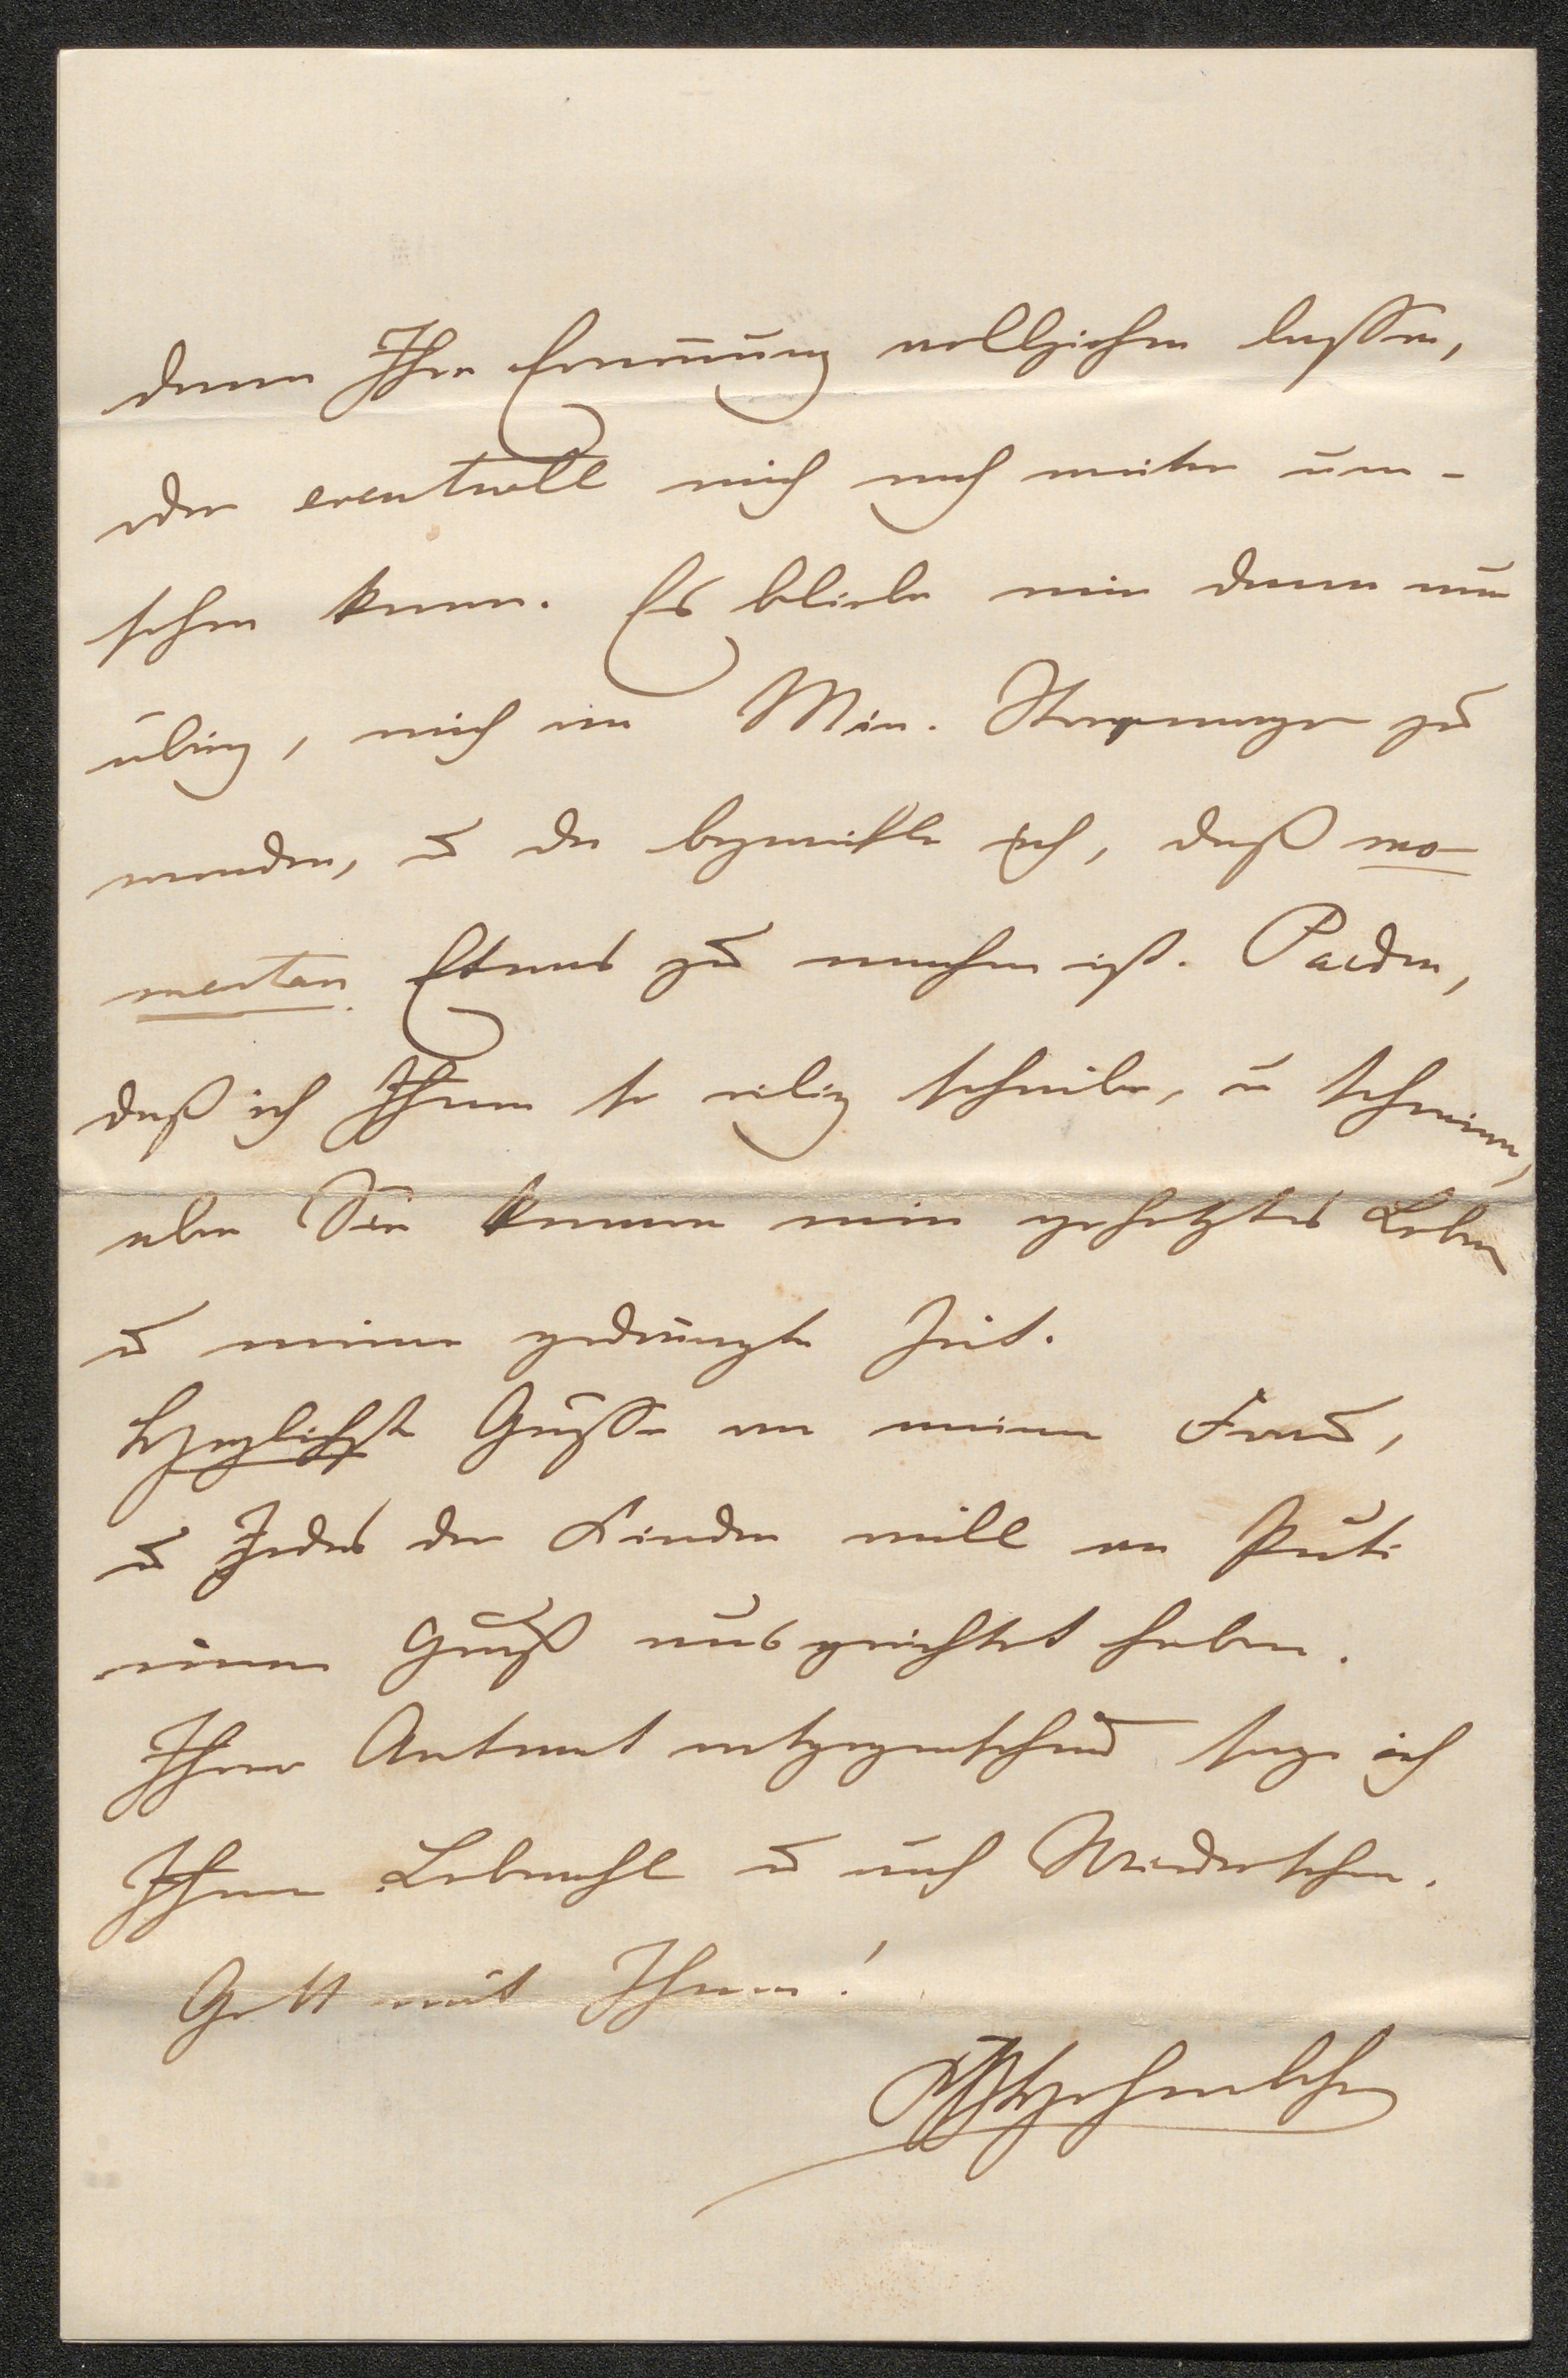 dann Ihre Ernennung vollziehen lassen,
oder eventuell mich noch weiter um-
sehen kann. Es bliebe mir dann nur
übrig, mich an Min. Stremayr zu
wenden, u da bezweifle ich, daß mo-
mentan Etwas zu machen ist. Pardon,
daß ich Ihnen so eilig schreibe, u schmiere,
aber Sie kennen mein gehetztes Leben
u meine gedrängte Zeit.
Herzlichste Grüsse an meine Frau,
u Jedes der Kinder will an Puti
einen Gruß ausgerichtet haben.
Ihrer Antwort entgegensehend sage ich
Ihnen Lebewohl u auf Wiedersehen.
Gott mit Ihnen!